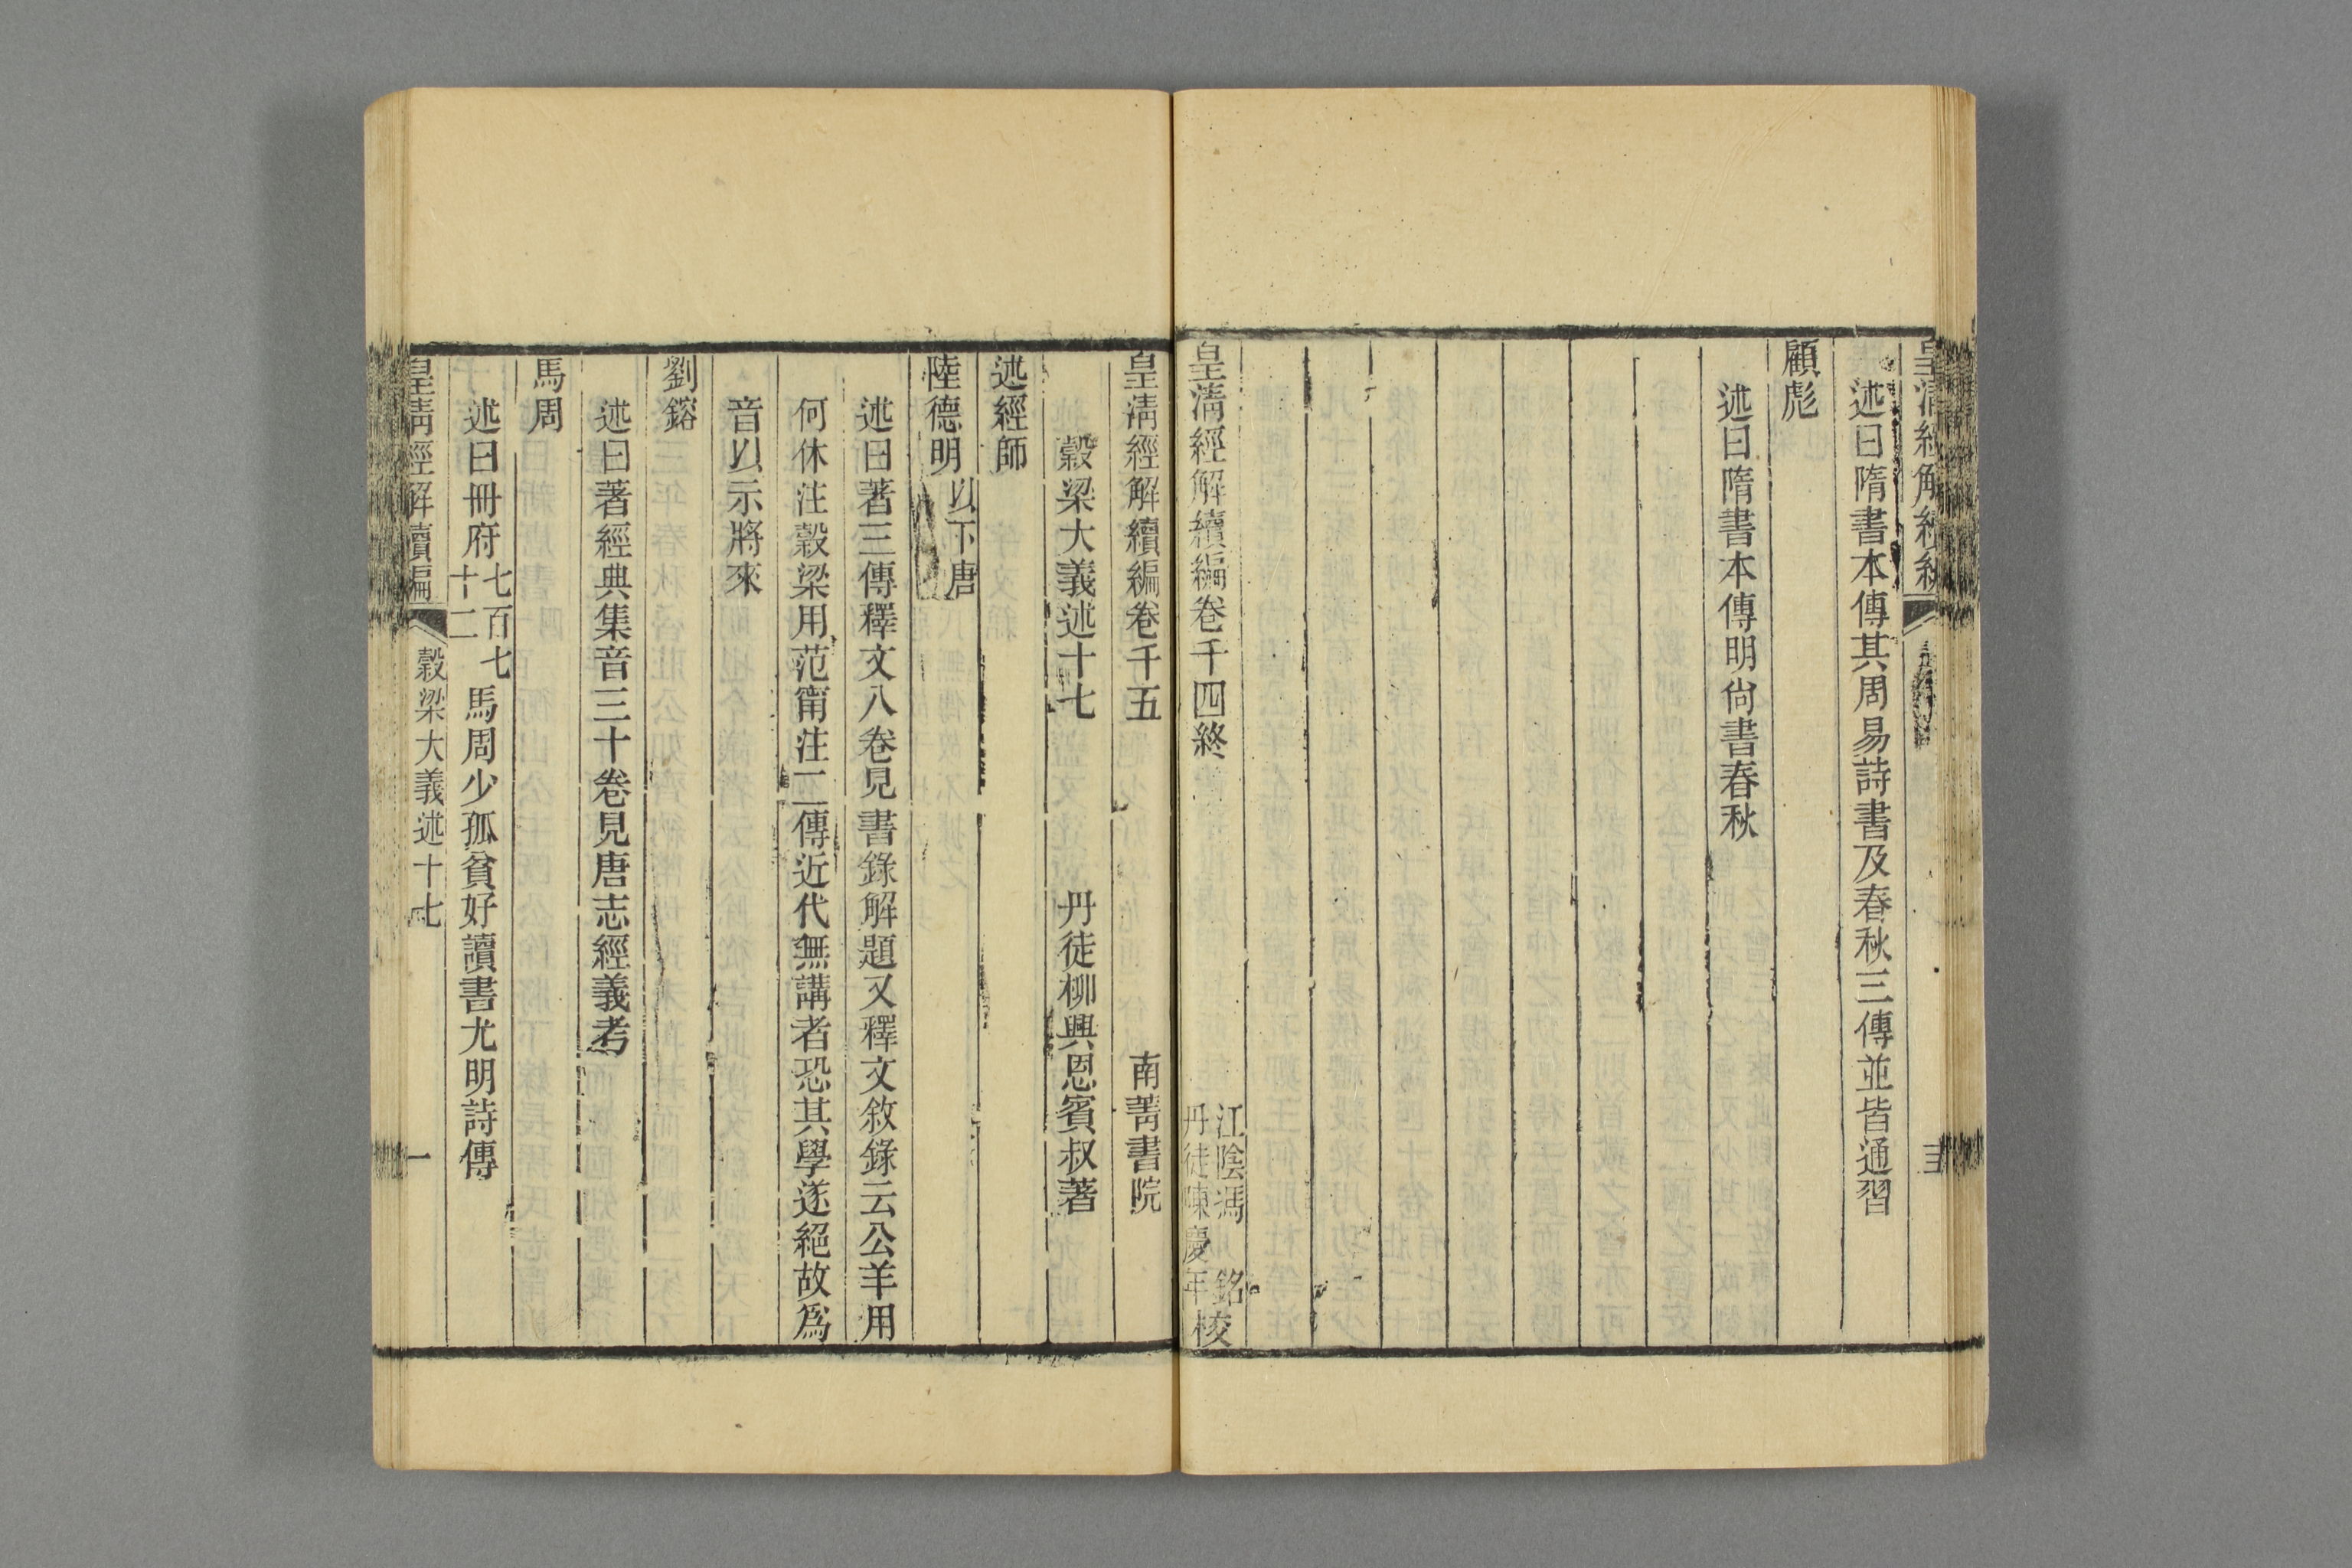 述曰隋書本傳其周易詩書及春秋三傳並皆通習
顧彪
述曰隋書本傳明尙書春秋
皇淸經解續編卷千四終
江陰馮銘
丹徒陳慶年
校
皇淸經解續編卷千五
南菁書院
穀梁大義述十七
丹徒柳興恩賓叔著
述經師
陸德明以下唐
述曰著三傳釋文八卷見書錄解題又釋文敘錄云公羊用
何休注穀梁用范甯注二傳近代無講者恐其學遂絕故爲
音以示將來
劉鎔
述曰著經典集音三十卷見唐志經義考
馬周
述曰冊府七百七十二馬周少孤貧好讀書尤明詩傳
皇淸經解續編 穀梁大義述十七 一